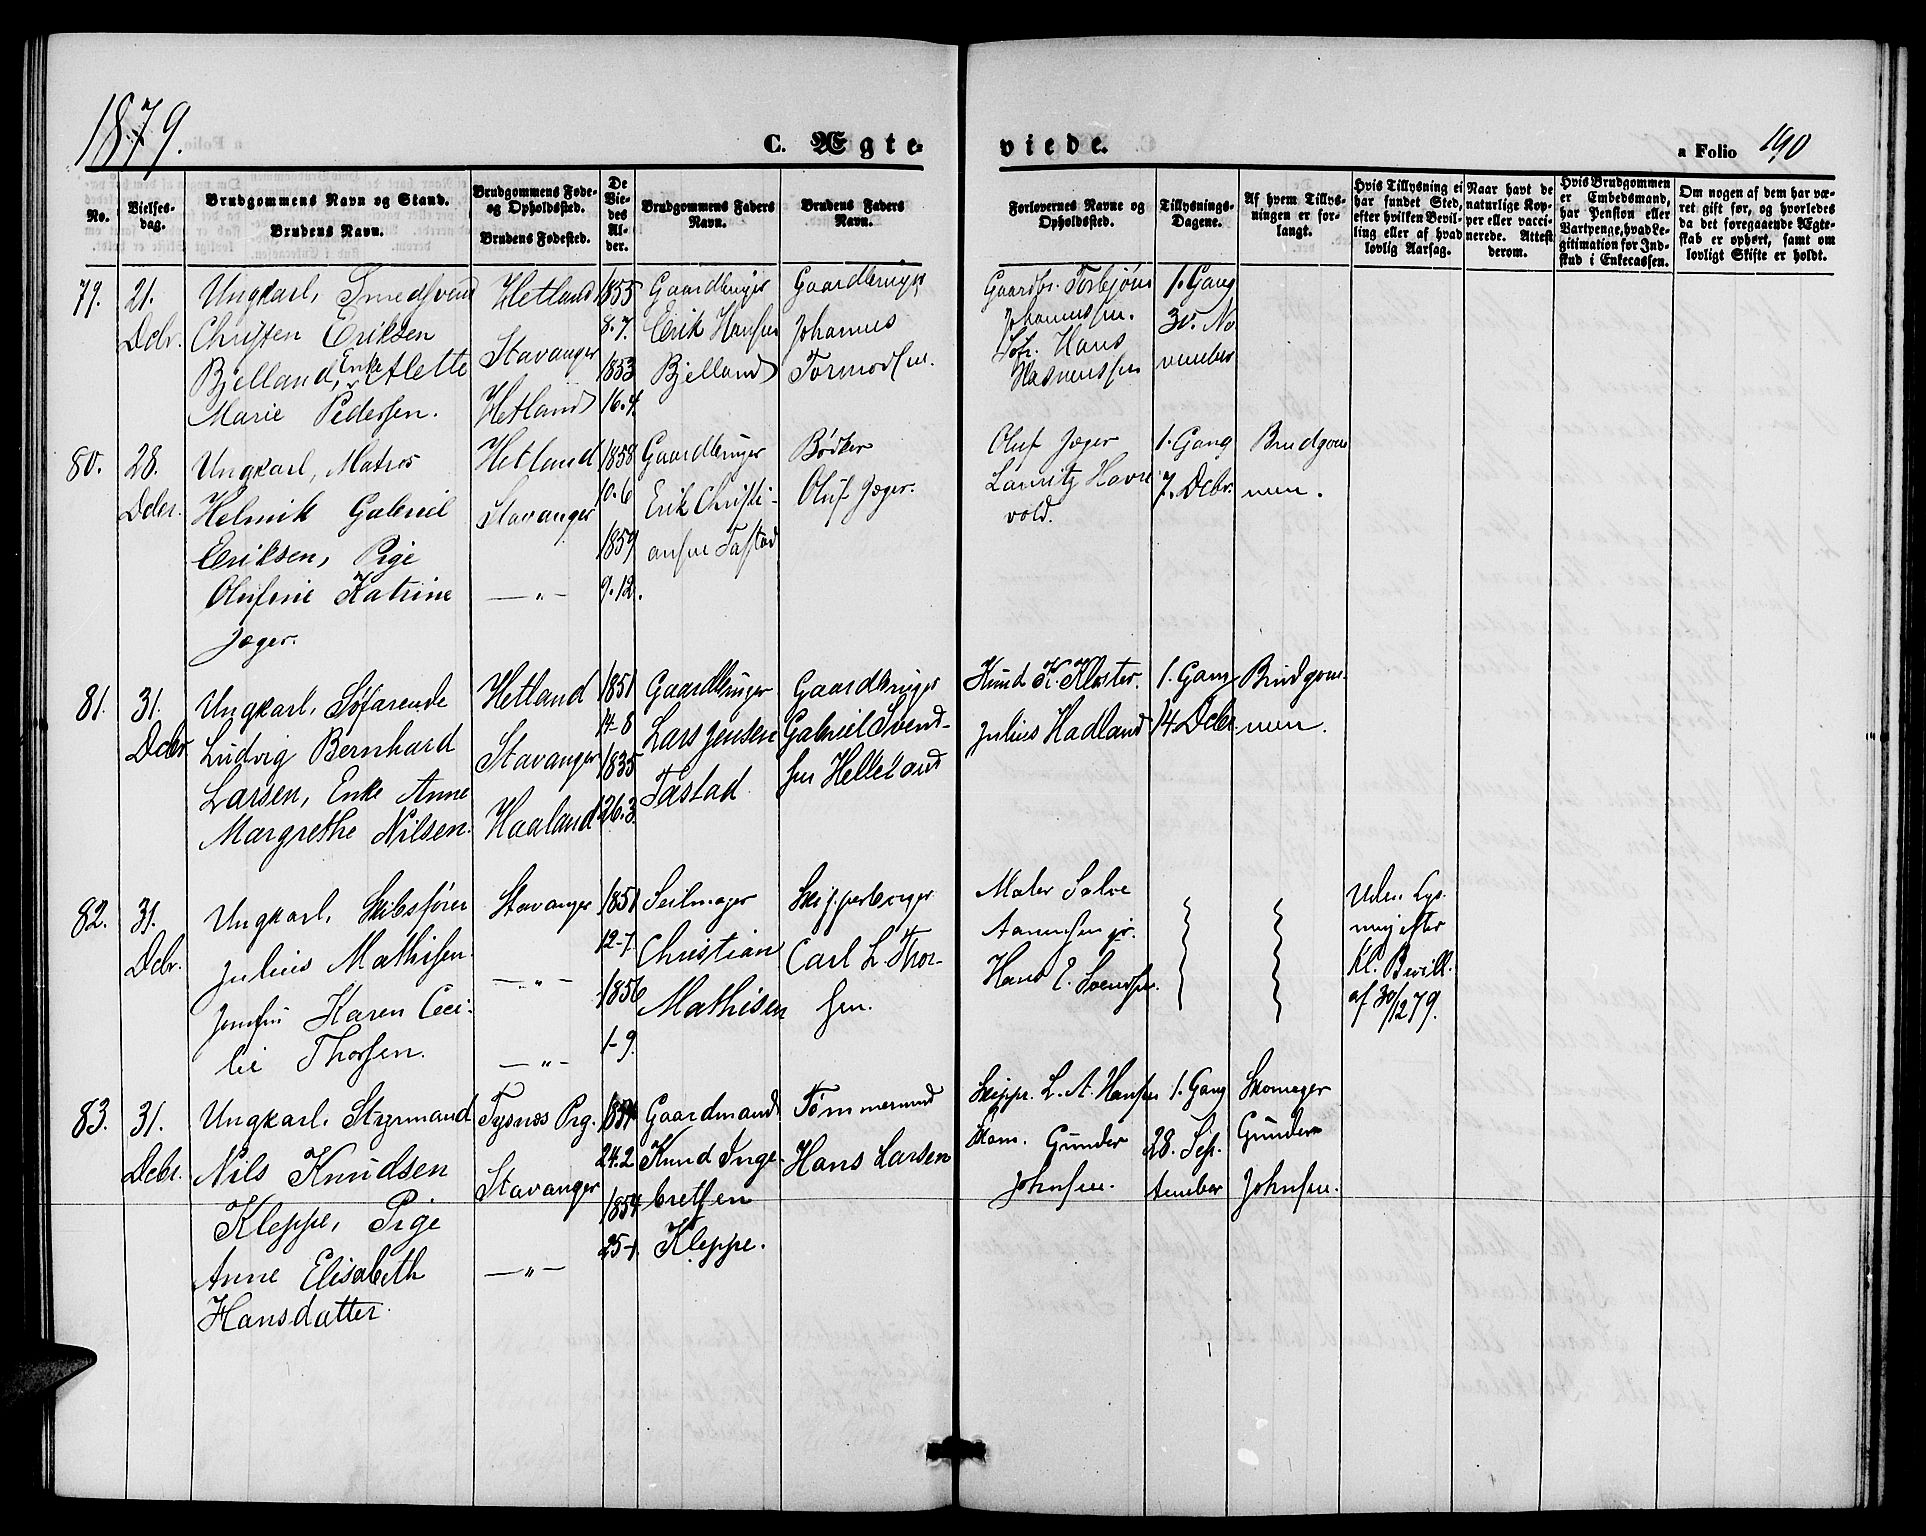 1879.
C. Ægte-
viede.
a Folio 190
No.
Vielses-
dag.
Brudgommens Navn og Stand.
Brudens Navn.
Brudgommens Føde-
og Opholdssted.
Brudens Fødested.
De
Vie-
des
Al-
der.
Brudgommens Faders
Navn.
Brudens Faders
Navn.
Forlovernes Navne og
Opholdssted.
Tillysnings-
Dagene.
Af hvem Tillys-
ningen er for-
langt.
Hvis Tillysning ei
har fundet Sted,
efter hvilken Bevil-
ling eller af hvad
lovlig Aarsag.
Naar havt de
naturlige Kop-
per eller vacci-
nerede. Attest
derom.
Hvis Brudgommen
er Embedsmand,
har Pension eller
Vartpenge, hvad Le-
gitimation for Ind-
skud i Enkecassen.
Om nogen af dem har væ-
ret gift før, og hvorledes
da det foregaaende Ægte-
skab er ophørt, samt om
lovligt Skifte er holdt.
79.
21.
Dcbr.
Ungkarl, Smedsvend
Christen Eriksen
Bjelland, Enke Alette
Marie Pedersen.
Hetland
Stavanger
Hetland
1855
8.7.
1853
16.4.
Gaardbruger
Erik Hansen
Bjelland
Gaardbruger
Johannes
Tormodsen.
Gaardbr. Torbjørn
Johannessen.
Sofr. Hans
Rasmussen
1. Gang
30. No-
vember
80.
28.
Dcbr.
Ungkarl, Matros
Helmik Gabriel
Eriksen, Pige
Olufine Katrine
Jæger.
Hetland
Stavanger
— „ —
1858
10.6
1859
9.12.
Gaardbruger
Erik Christi-
ansen Tastad
Bødker
Oluf Jæger.
Oluf Jæger
Lauritz Havre
vold.
1. Gang
7. Dcbr.
Brudgom
men.
81.
31.
Dcbr
Ungkarl, Søfarende
Ludvig Bernhard
Larsen, Enke Anne
Margrethe Nilsen.
Hetland
Stavanger
Haaland
1851
14-8
1835
26.3
Gaardbruger
Lars Jensen
Tastad
Gaardbruger
Gabriel Svend-
sen Helleland
Knud K. Kloster.
Julius Hadland
1. Gang
14 Dcbr
Brudgom-
men.
82.
31.
Dcbr.
Ungkarl, Skibsfører
Julius Mathisen.
Jomfru Karen Ceci-
lie Thorsen.
Stavanger
— „ —
— „ —
1851
12-7
1856
1-9.
Seilmager
Christian
Mathisen
Skipperborger
Carl L. Thor-
sen.
Maler Salve
Aanensen jr.
Hans E. Svendsen.
Uden Lys-
ning efter
Kl. Bevill.
af 30/12 79.
83.
31.
Dcbr.
Ungkarl, Styrmand
Nils Knudsen
Kleppe, Pige
Anne Elisabeth
Hansdatter.
Tysnæs Prg.
Stavanger
— „ —
24.2
1854
25-1
Gaardmand
Knud Inge-
bretsen
Kleppe.
Tømmermand
Hans Larsen
Skippr. L. A. Hansen
Skom. Gunder
Johnsen.
1. Gang
28. Sep-
tember
Skomager
Gunder
Johnsen.